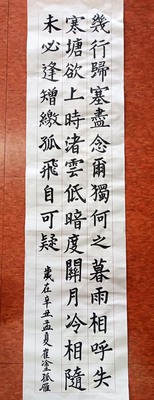 幾行歸塞盡念爾獨何之暮雨相呼失
寒塘欲上時渚雲低暗度關月冷相隨
未必逢矰繳孤飛自可疑
歲在辛丑孟夏崔塗孤雁